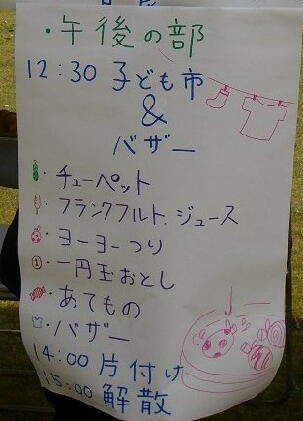 ・午後の部
12:30 子ども市
&
バザー
・チューペット
・フランクフルト.ジュース
・ヨーヨーつり
①・一円玉おとし
・あてもの
・バザー
14:00 片付け
15:00 解散